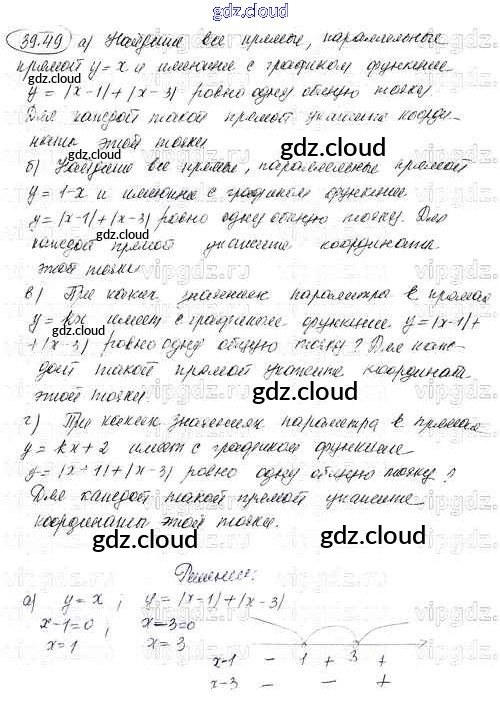 gdz.cloud
39.49 а) Найдите все прямые, параллельные
прямой y = x и имеющие с графиком функции
gdz.cloud
y = |x-1| + |x-3| ровно одну общую точку.
Для каждой такой прямой укажите коорди-
наты этой точки.
gdz.cloud
gdz.cloud
б) Найдите все прямые, параллельные прямой
y = 1-x и имеющие с графиком функции
y = |x-1| + |x-3| ровно одну общую точку. Для
gdz.cloud
каждой прямой укажите координаты
gdz.cloud
этой точки.
vipgdz.ru
в) При каких значениях параметра k прямая
y = kx имеет с графиком функции y = |x-1| +
+ |x-3| ровно одну общую точку? Для каж-
дой такой прямой укажите координаты
этой точки.
gdz.cloud
gdz.cloud
г) При каких значениях параметра k прямая
y = kx + 2 имеет с графиком функции
y = |x-1| + |x-3| ровно одну общую точку?
gdz.cloud
Для каждой такой прямой укажите
координаты этой точки.
gdz.cloud
gdz.cloud
Решение:
а) y = x ; y = |x-1| + |x-3|
x-1=0 ; x-3=0
x = 1 x = 3
x-1 - 1 + 3 +
x-3 - - +
gdz.cloud
gdz.cloud